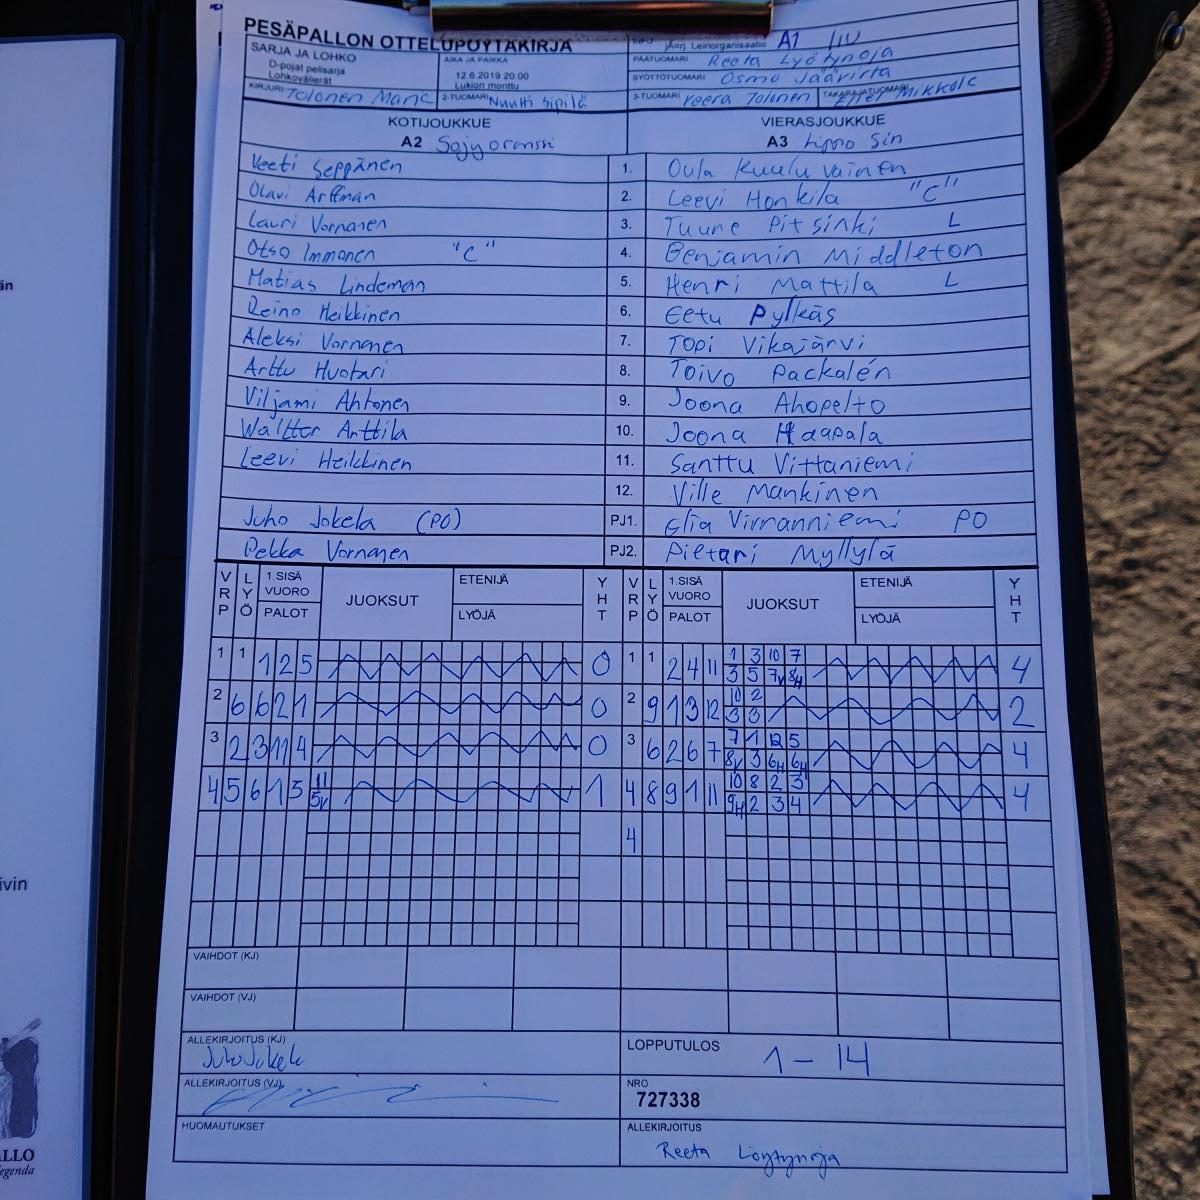 PESÄPALLON OTTELUPÖYTÄKIRJA
Järj. Leiriorganisaatio A1
SARJA JA LOHKO
D-pojat pelisarja
Lohkovälierät
AIKA JA PAIKKA
12.6.2019 20:00
Lukion monttu
PÄÄTUOMARI Reeta Löytynoja
SYÖTTÖTUOMARI Osmo
KIRJURI Tolonen
2-TUOMARI Nuutti Sipilä
3-TUOMARI Veera Tolonen
TAKARAJATUOMARI Mikkola
KOTIJOUKKUE
A2
VIERASJOUKKUE
A3
Veeti Seppänen 1. Oula Kuuluvainen
Olavi Arffman 2. Leevi Honkila "C"
Lauri Vornanen 3. Tuure Pitsinki L
Otso Immonen "C" 4. Benjamin Middleton
Matias Lindeman 5. Henri Mattila L
Reino Heikkinen 6. Eetu Pylkäs
Aleksi Vornanen 7. Topi Vikajärvi
Arttu Huotari 8. Toivo Packalén
Viljami Ahtonen 9. Joona Ahopelto
Waltter Arttila 10. Joona Haapala
Leevi Heikkinen 11. Santtu Vittaniemi
12. Ville Mankinen
Juho Jokela (PO) PJ1. Elia Virranniemi PO
Pekka Vornanen PJ2. Pietari Myllylä
VRP LYÖ 1.SISÄ VUORO PALOT JUOKSUT ETENIJÄ LYÖJÄ YHT VRP LYÖ 1.SISÄ VUORO PALOT JUOKSUT ETENIJÄ LYÖJÄ YHT
1 1 1 2 5 0 1 1 2 4 11 1 3 10 7 4
3 5 7V 8H
2 6 6 2 1 0 2 9 1 3 12 10 2 2
3 3
3 2 3 11 4 0 3 6 2 6 7 7 1 12 5 4
8V 3 6H 6H
4 5 6 1 3 11 1 4 8 9 1 11 10 8 2 3 4
5V 9H 2 3 4
4
VAIHDOT (KJ)
VAIHDOT (VJ)
ALLEKIRJOITUS (KJ)
Juho Jokela
LOPPUTULOS 1 - 14
ALLEKIRJOITUS (VJ)
NRO
727338
HUOMAUTUKSET
ALLEKIRJOITUS
Reeta Löytynoja
än
ivin
ALLO
legenda